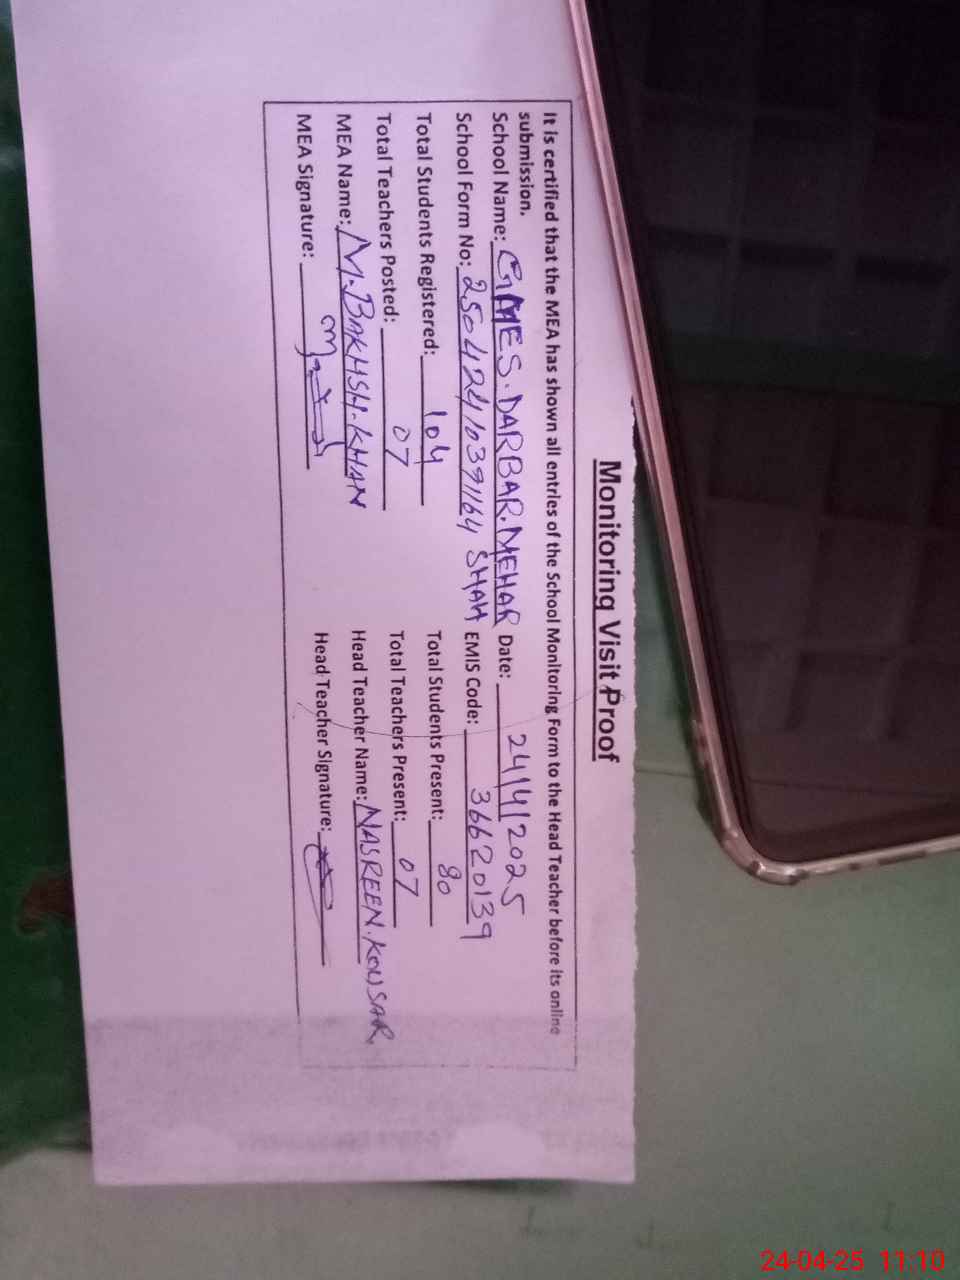 Monitoring Visit Proof
It is certified that the MEA has shown all entries of the School Monitoring Form to the Head Teacher before its online
submission.
School Name: GMES.DARBAR.MEHAR Date: 24/4/2025
School Form No: 2504241039164 SHAH EMIS Code: 36620139
Total Students Registered: 104 Total Students Present: 80
Total Teachers Posted: 07 Total Teachers Present: 07
MEA Name: M.BAKHSH.KHAN Head Teacher Name: NASREEN.KOUSAR
MEA Signature: Head Teacher Signature:
24-04-25 11:10